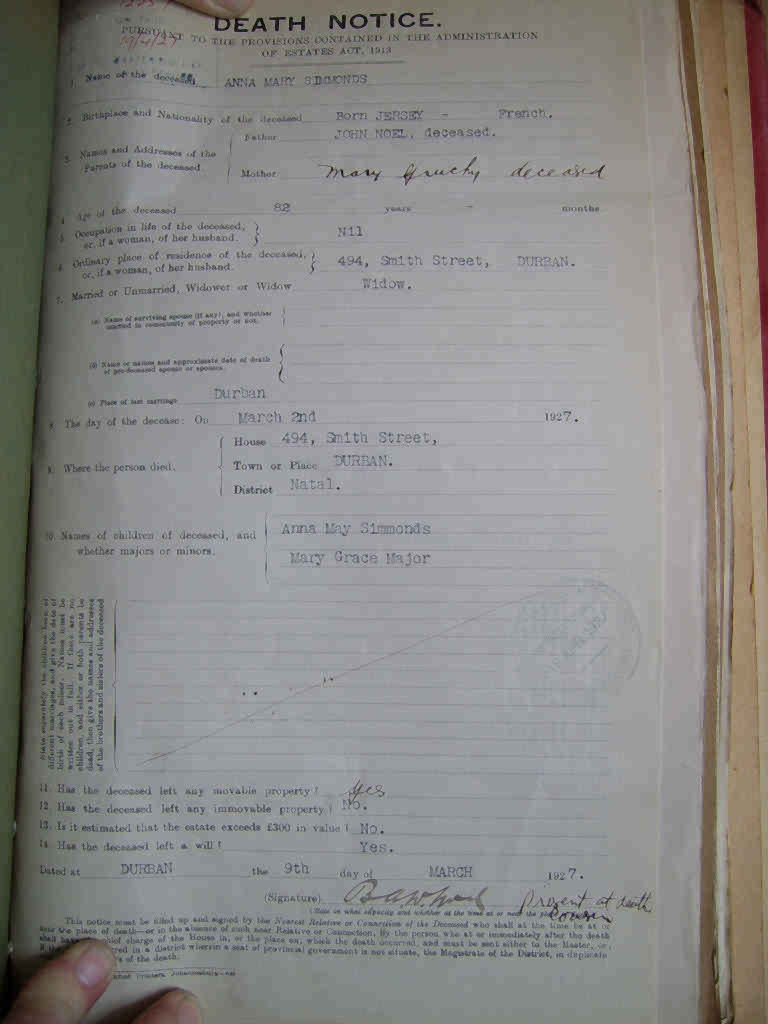 DEATH NOTICE.
PURSUANT TO THE PROVISIONS CONTAINED IN THE ADMINISTRATION
OF ESTATES ACT, 1913
1. Name of the deceased ANNA MARY SIMMONDS
2. Birthplace and Nationality of the deceased Born JERSEY - French.
3. Names and Addresses of the Parents of the deceased.
Father JOHN NOEL, deceased.
Mother Mary Gruchy deceased
4. Age of the deceased 82 years - months
5. Occupation in life of the deceased, or, if a woman, of her husband. Nil
6. Ordinary place of residence of the deceased, or, if a woman, of her husband. 494, Smith Street, DURBAN.
7. Married or Unmarried, Widower or Widow Widow.
(a) Name of surviving spouse (if any), and whether
married in community of property or not.
(b) Name or names and approximate date of death
of pre-deceased spouse or spouses.
(c) Place of last marriage Durban
8. The day of the decease: On March 2nd 1927.
9. Where the person died.
House 494, Smith Street,
Town or Place DURBAN.
District Natal.
10. Names of children of deceased, and
whether majors or minors.
Anna May Simmonds
Mary Grace Major
State separately the children born of
different marriages, and give the date of
birth of each minor. Names must be
written out in full. If there are no
children, and either or both parents be
dead, then give the names and addresses
of the brothers and sisters of the deceased
11. Has the deceased left any movable property? Yes
12. Has the deceased left any immovable property? No.
13. Is it estimated that the estate exceeds £300 in value? No.
14. Has the deceased left a will? Yes.
Dated at DURBAN the 9th day of MARCH 1927.
(Signature) Present at death
Cousin
(State in what capacity and whether at the time at or near the
This notice must be filled up and signed by the Nearest Relative or Connection of the Deceased who shall at the time be at or
near the place of death—or in the absence of such near Relative or Connection, By the person who at or immediately after the death
shall have chief charge of the House in, or the place on, which the death occurred, and must be sent either to the Master, or,
if in a district wherein a seat of provincial government is not situate, the Magistrate of the District, in duplicate
of the death.
Printers Johannesburg